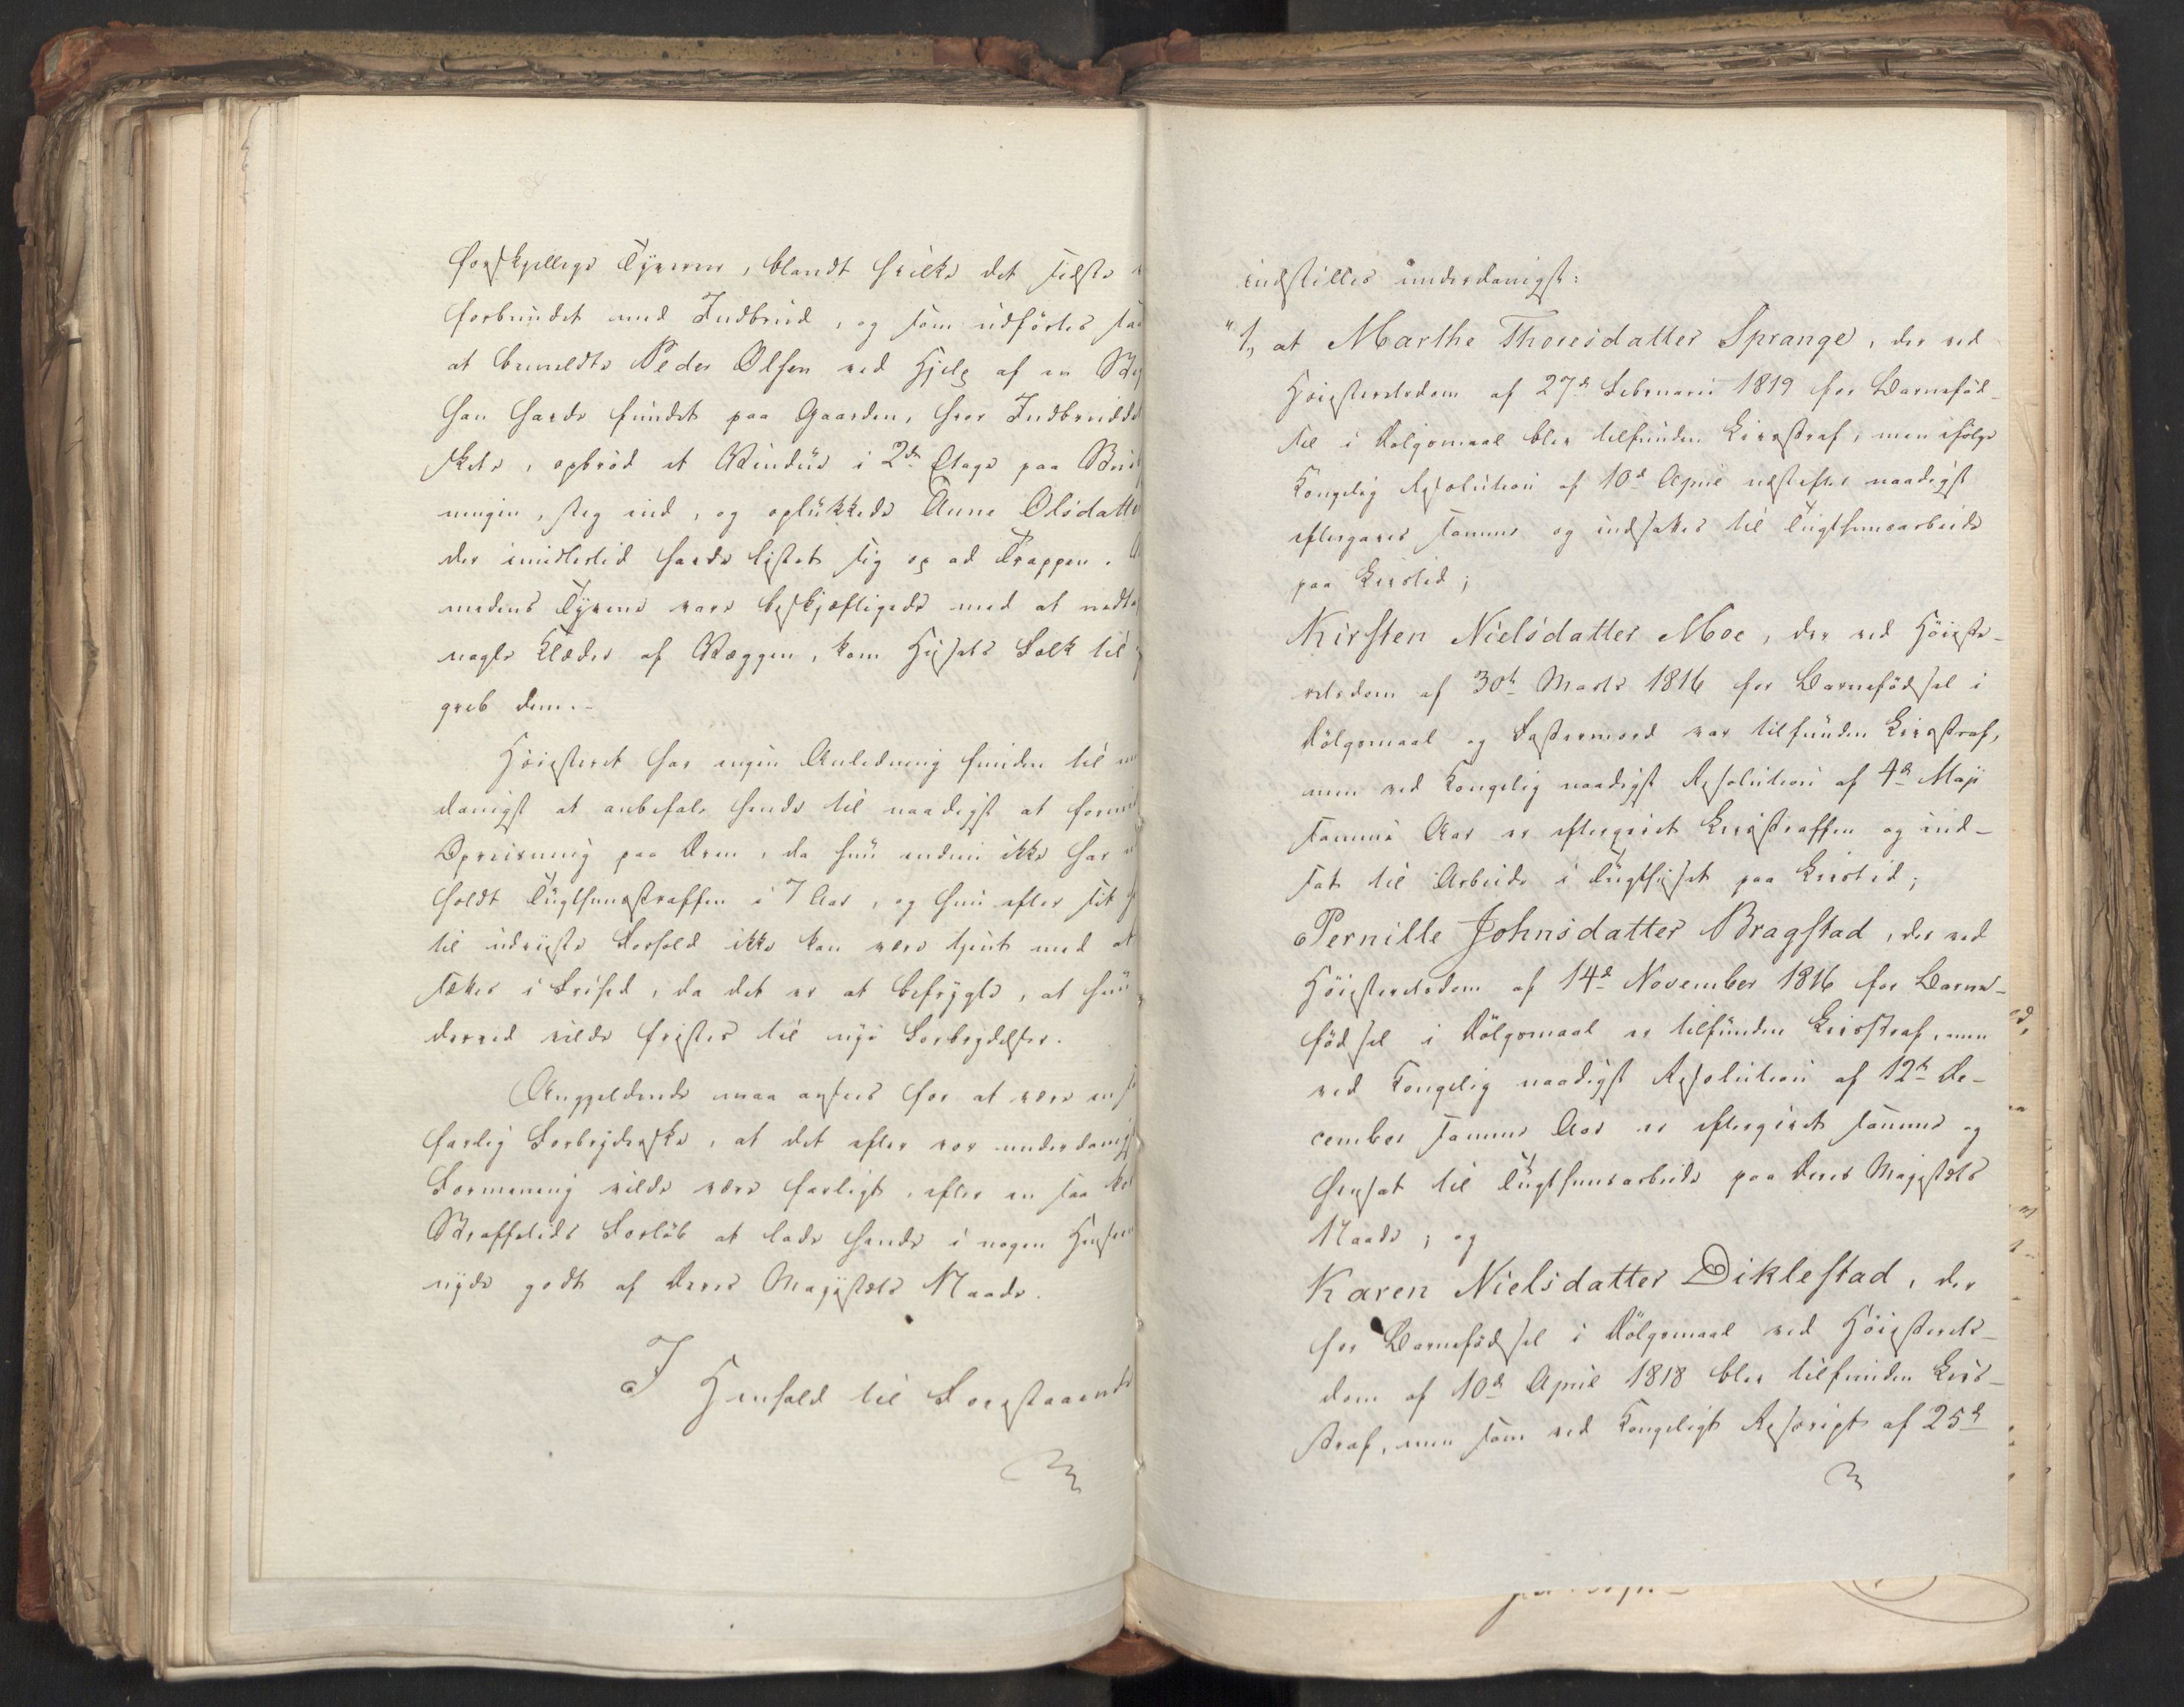 forskjellige Tyverier, blandt hvilke det sidste
forbundet med Indbrud, og som udførtes saa
at bemeldte Peder Olsen ved Hjelp af en
han havde fundet paa Gaarden, hvor Indbruddet
skete, opbrød et Vindue i 2den Etage paa
ningen, steg ind, og oplukkede Anne Olsdatter
der imidlertid havde listet sig op ad Trappen.
medens Tyvene vare beskjæftigede med at nedta
nogle Klæder af Væggen, kom Husets Folk til
greb dem.-
Høiesteret har ingen Anledning funden til
danigst at anbefale hende til naadigst at formil
Opreisning paa Dem, da hun endnu ikke har
holdt Tugthuusstraffen i 7 Aar, og hun efter sit
til udviste Forhold ikke kan være tjent med at
sættes i Frihed, da det er at befrygte, at hun
derved vilde fristes til nye Forbrydelser.
Angjeldende maa ansees for at være en
farlig Forbryderske, at det efter vor underdanigst
Formening vilde være farligt, efter en saa kort
Straffetids Forløb at lade hende i nogen Henseende
nyde godt af Deres Majestæts Naade.
I Henhold til Foregstaaende
indstilles underdanigst:
"1, at Marthe Thoresdatter Sprange, der ved
Høiesteretsdom af 27de Februarii 1819 for Barnefød-
sel i Dølgsmaal blev tilfunden Livsstraf, men ifølge
Kongelig Resolution af 10de April næstefter naadigst
eftergaves samme og indsattes til Tugthuusarbeide
paa Livstid;
Kirsten Nielsdatter Moe, der ved Høieste-
retsdom af 30te Marts 1816 for Barnefødsel i
Dølgsmaal og Fostermord var tilfunden Livsstraf,
men ved Kongelig naadigst Resolution af 4de Maji
samme Aar er eftergivet Livsstraffen og ind-
sat til Arbeide i Tugthuset paa Livstid;
Pernille Johnsdatter Bragstad, der ved
Høiesteretsdom af 14de November 1816 for Barne-
fødsel i Dølgsmaal er tilfunden Livsstraf, men
ved Kongelig naadigst Resolution af 12te De-
cember samme Aar er eftergivet samme og
hensat til Tugthuusarbeide paa Deres Majestæts
Naade; og
Karen Nielsdatter Diklestad, der
for Barnefødsel i Dølgsmaal ved Høiesterets-
dom af 10de April 1818 blev tilfunden Livs-
straf, men som ved Kongeligt Rescript af 25de